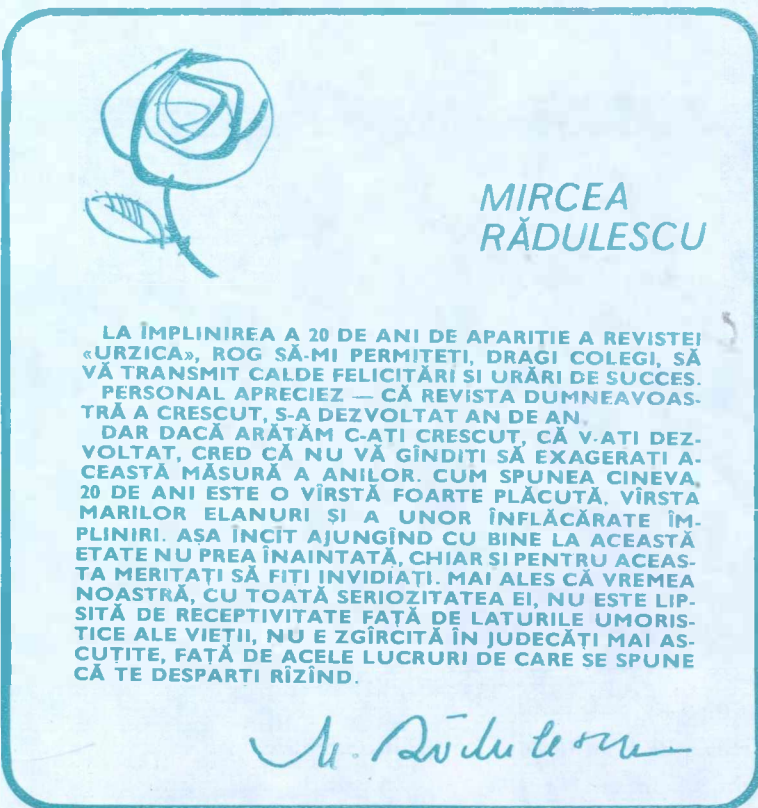 MIRCEA
RĂDULESCU
LA ÎMPLINIREA A 20 DE ANI DE APARITIE A REVISTEI
«URZICA», ROG SĂ-MI PERMITETI, DRAGI COLEGI, SĂ
VĂ TRANSMIT CALDE FELICITĂRI SI URĂRI DE SUCCES.
PERSONAL APRECIEZ — CĂ REVISTA DUMNEAVOAS-
TRĂ A CRESCUT, S-A DEZVOLTAT AN DE AN.
DAR DACĂ ARĂTĂM C-ATI CRESCUT, CĂ V-ATI DEZ-
VOLTAT, CRED CĂ NU VĂ GÎNDITI SĂ EXAGERATI A-
CEASTĂ MĂSURĂ A ANILOR. CUM SPUNEA CINEVA,
20 DE ANI ESTE O VÎRSTĂ FOARTE PLĂCUTĂ, VÎRSTA
MARILOR ELANURI ȘI A UNOR ÎNFLĂCĂRATE ÎM-
PLINIRI. AȘA ÎNCÎT AJUNGÎND CU BINE LA ACEASTĂ
ETATE NU PREA ÎNAINTATĂ, CHIAR SI PENTRU ACEAS-
TA MERITAȚI SĂ FIȚI INVIDIAȚI. MAI ALES CĂ VREMEA
NOASTRĂ, CU TOATĂ SERIOZITATEA EI, NU ESTE LIP-
SITĂ DE RECEPTIVITATE FAȚĂ DE LATURILE UMORIS-
TICE ALE VIEȚII, NU E ZGÎRCITĂ ÎN JUDECĂȚI MAI AS-
CUȚITE, FAȚĂ DE ACELE LUCRURI DE CARE SE SPUNE
CĂ TE DESPARTI RÎZÎND.
M. Rădulescu